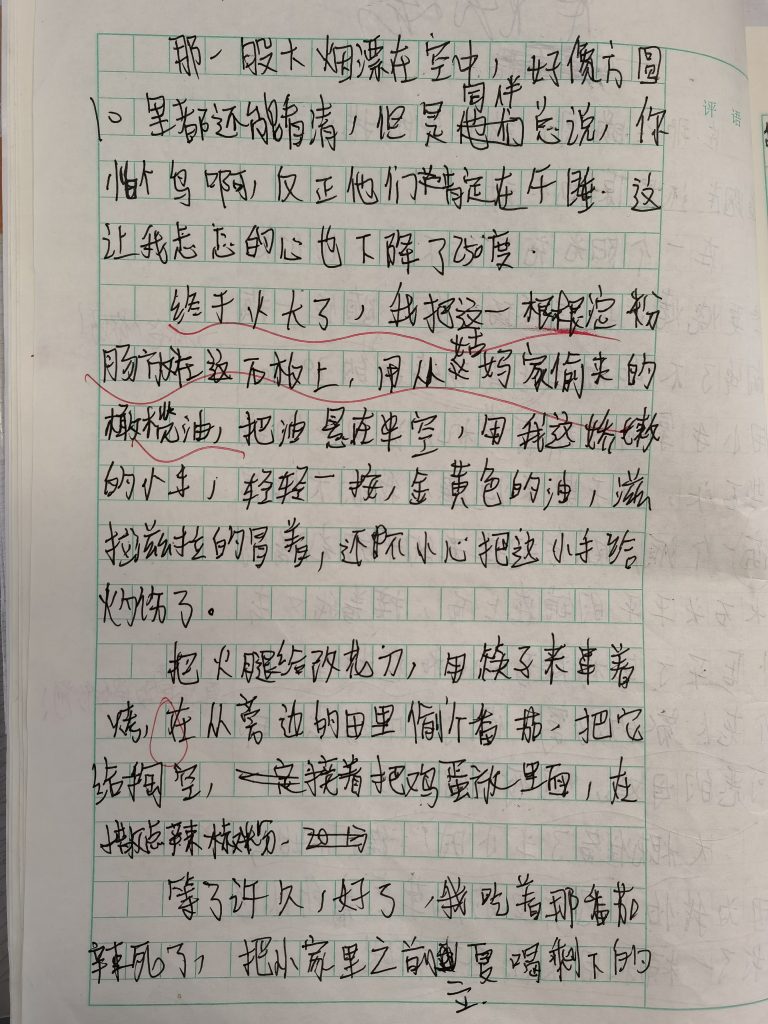 评语
那一股大烟漂在空中，好像方圆
10里都还能看清，但是同伴总说，你
怕个鸟啊，反正他们肯定在午睡．这
让我忐忑的心也下降了250度．
终于火大了，我把这一根根淀粉
肠放在这石板上，用从姑妈家偷来的
橄榄油，把油悬在半空，用我这娇嫩
的小手，轻轻一按，金黄色的油，滋
拉滋拉的冒着，还不小心把这小手给
灼伤了。
把火腿给改花刀，用筷子来串着
烤，在从旁边的田里偷个番茄、把它
给掏空，接着把鸡蛋放里面，在
撒点辣椒粉．
等了许久，好了，我吃着那番茄
辣死了，把小家里之前夏喝剩下的